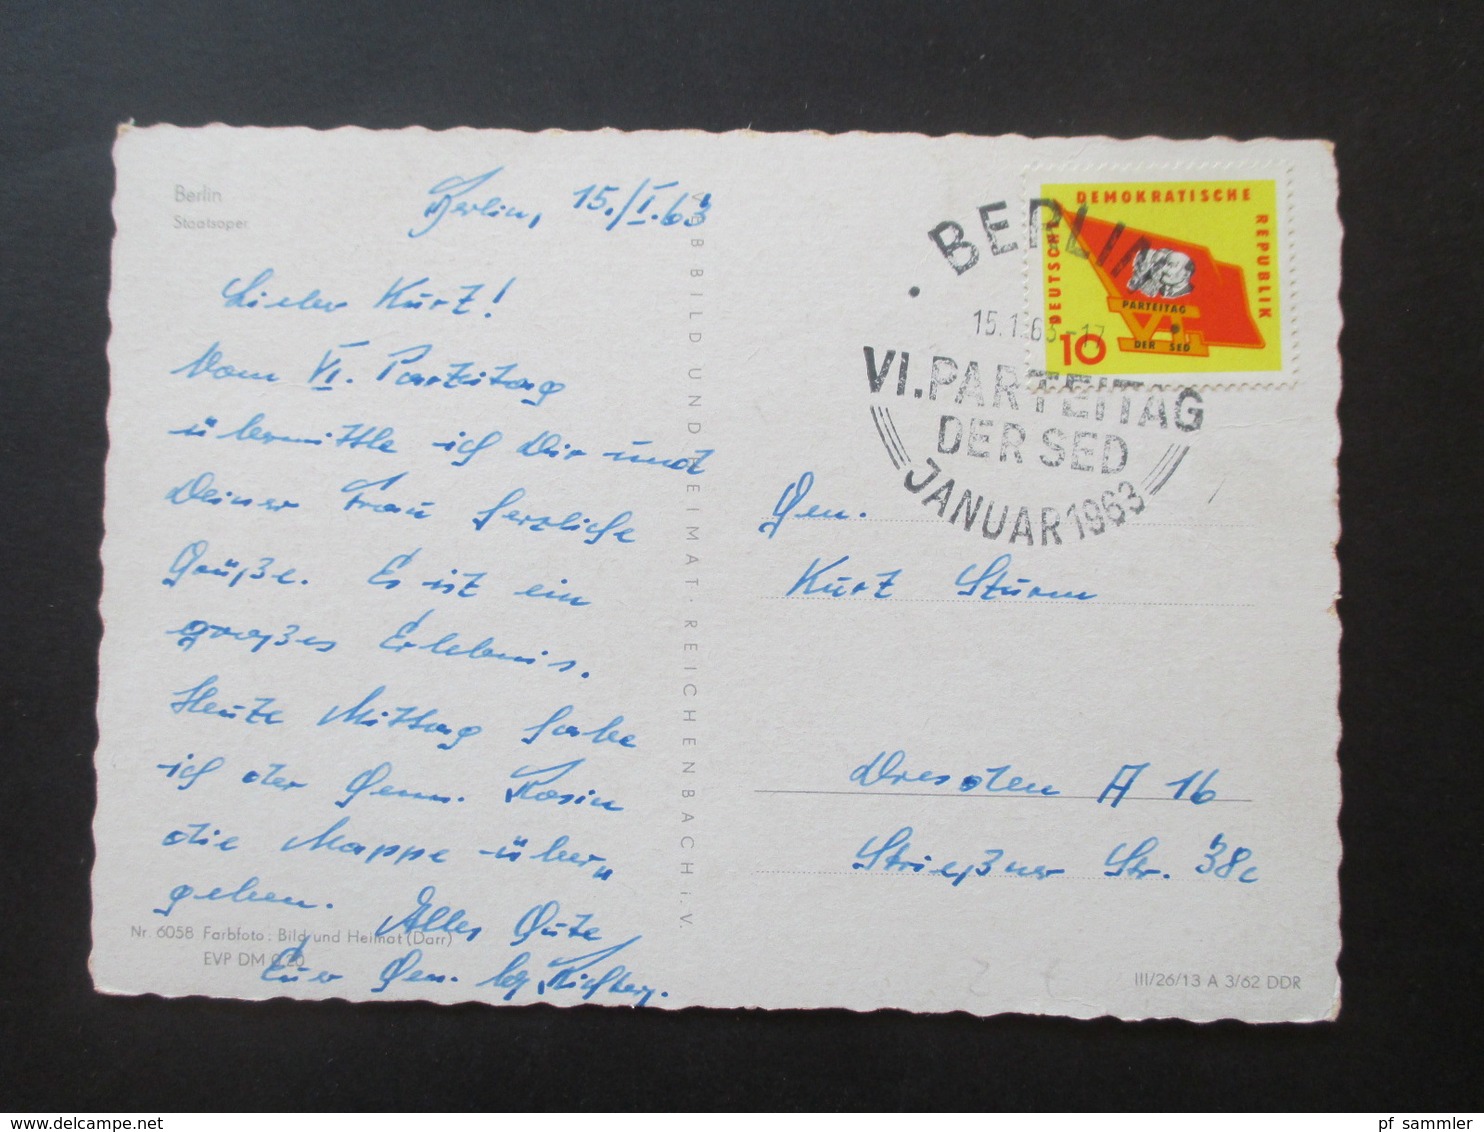 Berlin
Staatsoper
Berlin, 15./I.63
Lieber Kurt!
Vom VI. Parteitag
übermittle ich Dir und
Deiner Frau herzliche
Grüße. Es ist ein
großes Erlebnis.
Heute Mittag habe
ich der Genn. Rosin
die Mappe über„
geben. Alles Gute
Euer Gen.
Nr. 6058 Farbfoto: Bild und Heimat (Darr)
EVP DM 0,20
VEB BILD UND HEIMAT · REICHENBACH i. V.
BERLIN
15.1.63-17
VI. PARTEITAG
DER SED
JANUAR 1963
DEUTSCHE DEMOKRATISCHE REPUBLIK
PARTEITAG
VI.
DER SED
10
Gen.
Kurt Sturm
Dresden A 16
Strießner Str. 38c
III/26/13 A 3/62 DDR
pf_sammler